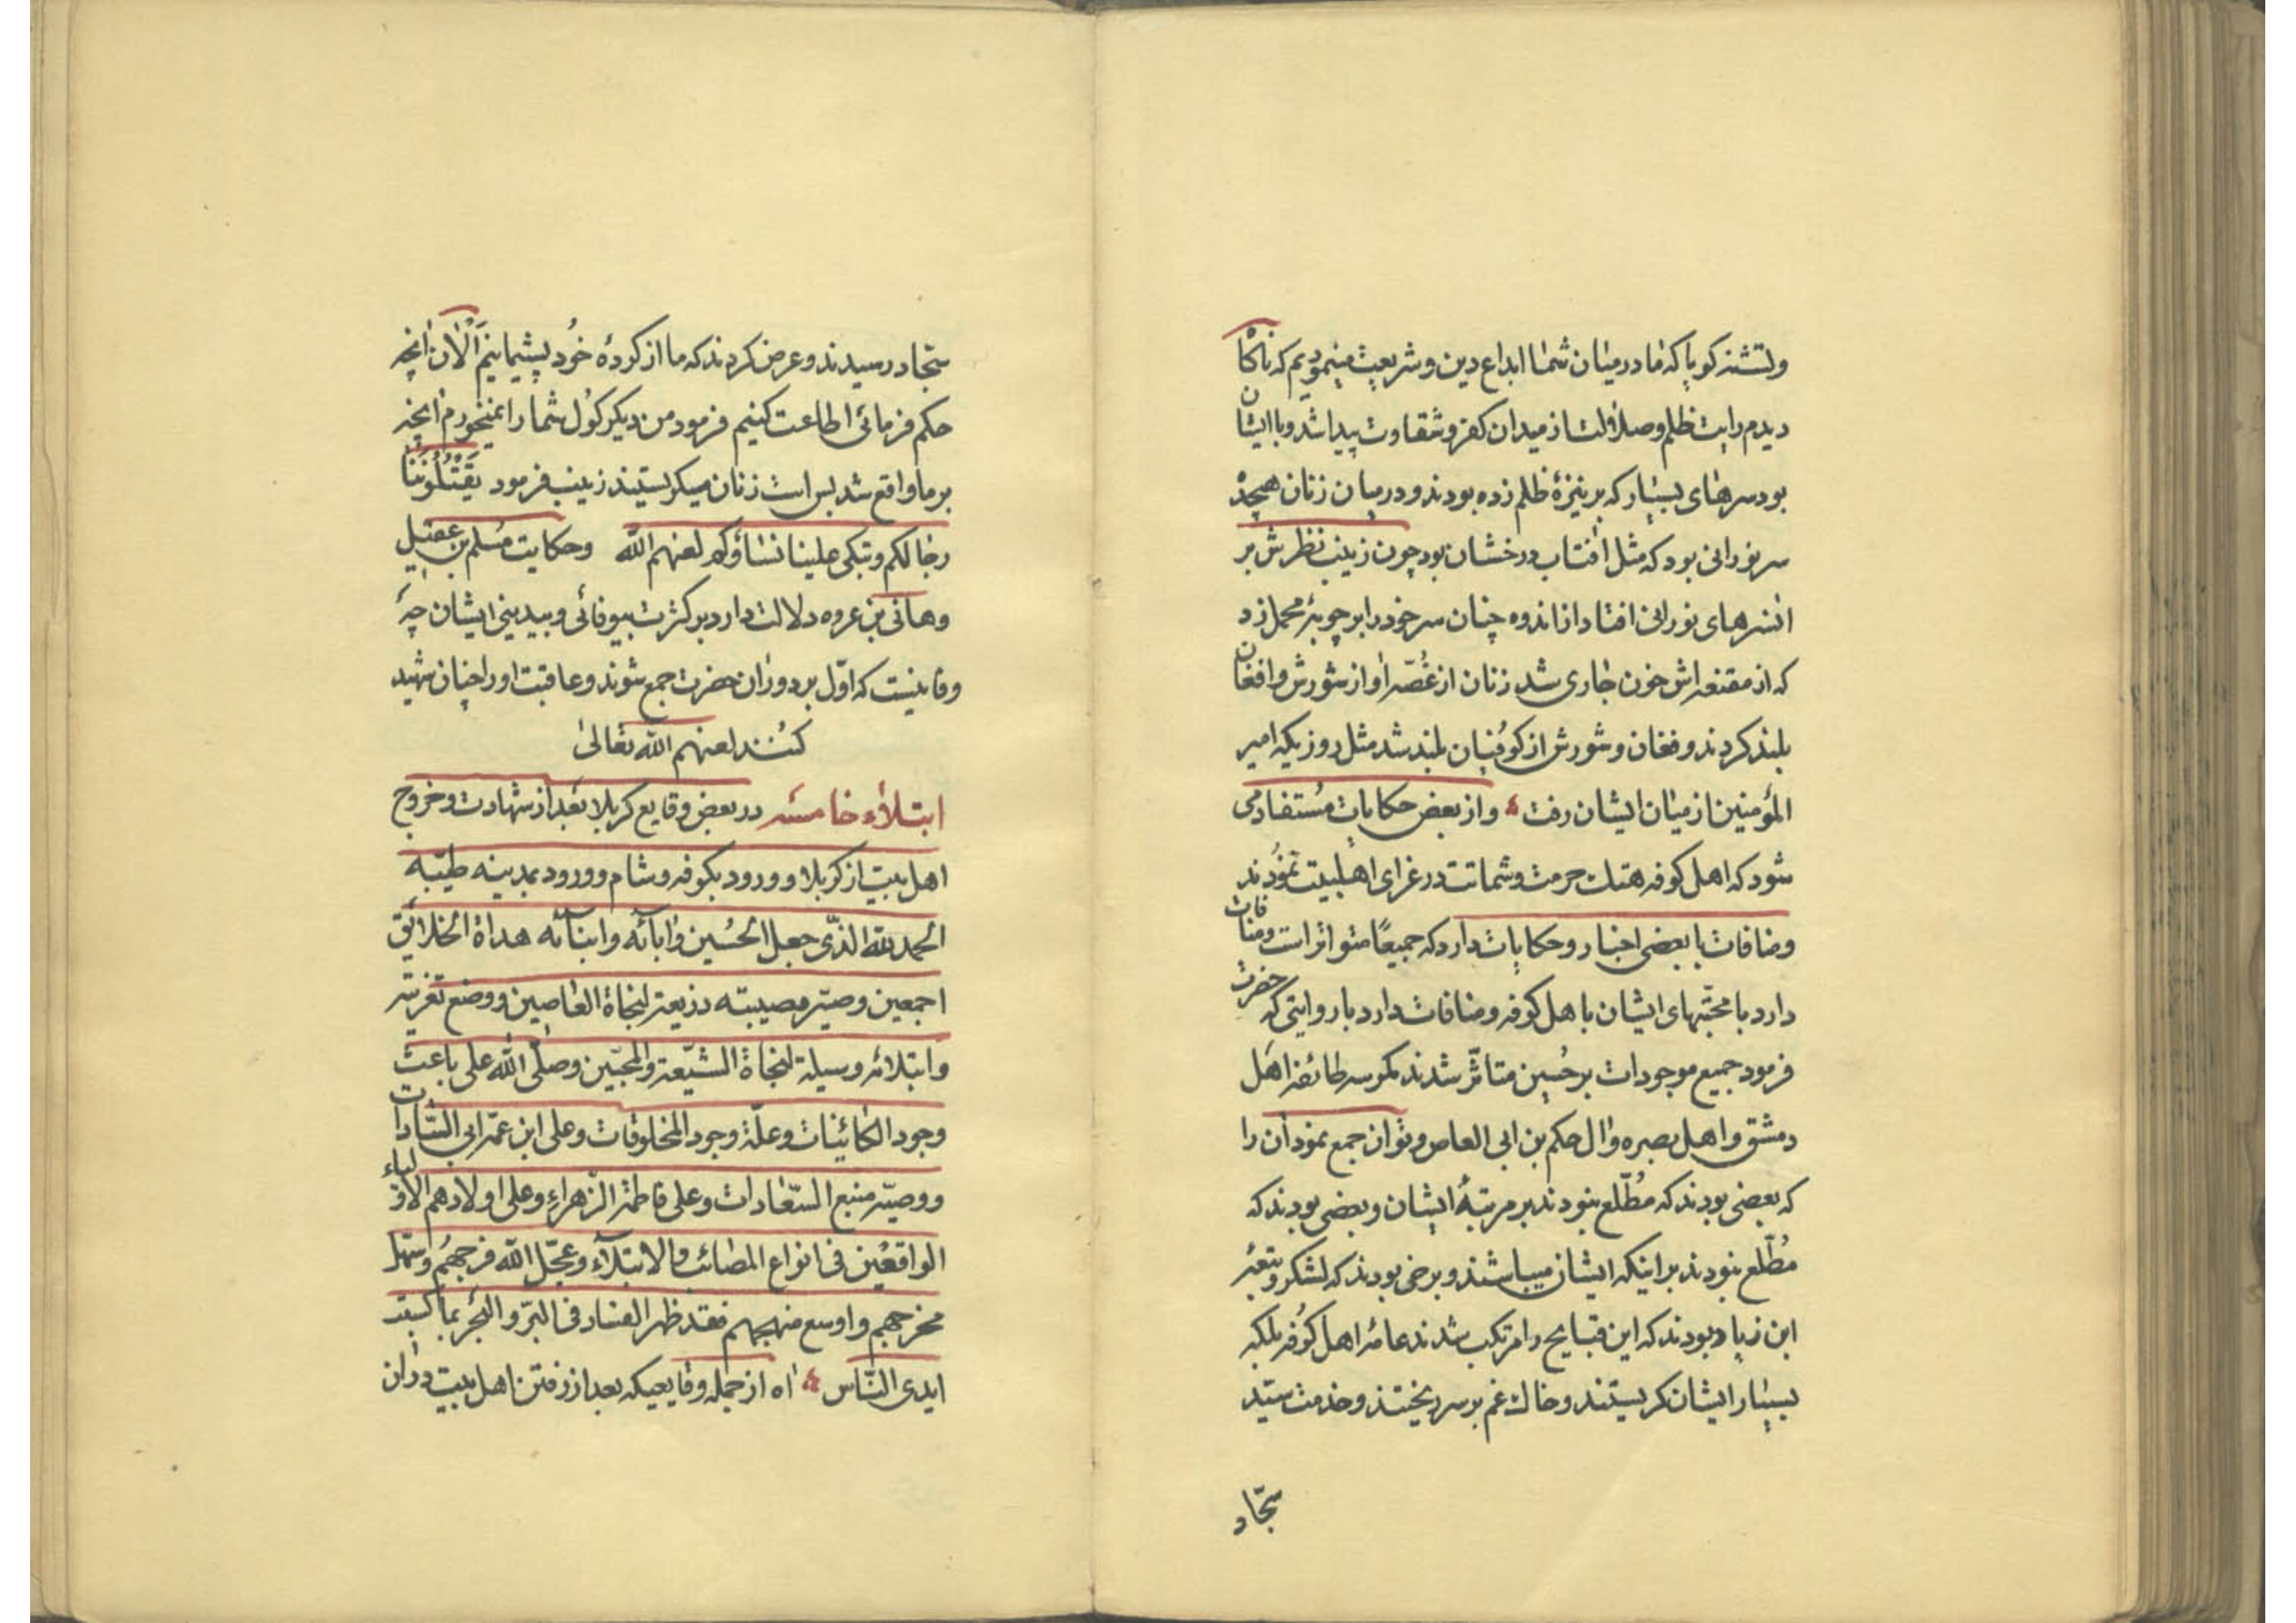 ولتشنه کویا که ما در میان شما ابداع دین و شریعت مینمودیم که ناکاه
دیدم رایت ظلم و ضلالت از میدان کفر و شقاوت پیدا شد و با ایشان
بود سرهای بسیار که بر نیزهٔ ظلم زده بودند و در میان زنان هیجده
سر نورانی بود که مثل افتاب درخشان بود چون زینب نظرش بر
انسرهای نورانی افتاد از اندوه چنان سر خود را بر چوبهٔ محمل زد
که از مقنعه اش خون جاری شد زنان از غُصّه او از شورش و افغان
بلند کردند و فغان و شورش از کوفیان بلند شد مثل روزیکه امیر
المؤمنین از میان ایشان رفت و از بعض حکایات مُستفاد می
شود که اهل کوفه هتک حرمت و شماتت در عزای اهلبیت نمودند
و منافات با بعضی اخبار و حکایات دارد که جمیعًا متواتر است و منافات
دارد با محبّتهای ایشان با اهل کوفه و منافات دارد با روایتی که حضرت
فرمود جمیع موجودات بر حُسین متاثّر شدند مکر سه طائفه اهل
دمشق و اهل بصره و ال حکم بن ابی العاص و توان جمع نمود ان را
که بعضی بودند که مُطّلع نبودند بر مرتبهٔ ایشان و بعضی بودند که
مُطّلع نبودند بر اینکه ایشان میباشند و برخی بودند که لشکر و تبعهٔ
ابن زیاد بودند که این قبایح را مرتکب شدند عامهٔ اهل کوفه بلکه
بسیار ایشان کریستند و خاک غم بر سر ریختند و خدمت سیّد
سجّاد
سجّاد رسیدند و عرض کردند که ما از کردهٔ خُود پشیمانیم اَلْان انچه
حکم فرمائی اطاعت کنیم فرمود من دیکر کول شما را نمیخورم انچه
بر ما واقع شد بس است زنان میکریستند زینب فرمود یَقْتُلُونَنا
رجالکم و تبکی علینا نساؤکم لعنهم الله و حکایت مُسلم بن عقیل
و هانی بن عروه دلالت دارد بر کثرت بیوفائی و بیدینی ایشان چه
وفائیست که اوّل بر دوران حضرت جمع شوند و عاقبت او را چنان شهید
کنند لعنهم الله تعالیٰ
ابتلاء خامسه در بعض وقایع کربلا بعد از شهادت و خروج
اهل بیت از کربلا و ورود بکوفه و شام و ورود بمدینه طیّبه
الحمد لله الذّی جعل الحُسین و ابآئه و ابنآئه هداة الخلائق
اجمعین و صیّر مصیبته ذریعة لنجاة العاصین و وضع تعزیته
و ابتلائه وسیلة لنجاة الشیّعة و المحبّین و صلّی الله علی باعث
وجود الکائنات و علّة وجود المخلوقات و علی ابن عمّه ابی السّادات
و وصیّه منبع السّعادات و علی فاطمة الزّهراء و علی اولادهم الاولیاء
الواقعین فی انواع المصائب و الابتلآء و عجّل الله فرجهُم و سهّل
مخرجهم و اوسع منهجهم فقد ظهر الفساد فی البرّ و البحر بما کسبت
ایدی النّاس اه از جمله وقایعیکه بعد از رفتن اهل بیت در ان